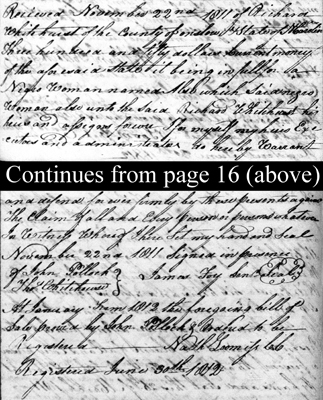 Received November 22nd 1811 of Richard
Whitehurst of the County of Onslow & State of N Carolina
Three hundred and fifty dollars Current money
of the aforesaid State it being in full for a
Negro Woman named which said negro
Woman also unto the said Richard Whitehurst his
heirs and assigns I my self my heirs Exe
cutors and administrators do hereby Warrant
Continues from page 16 (above)
and defend forever firmly by these presents against
The Claim of all and Every person or persons whatever
In Witness Whereof I have set my hand and Seal
November 22nd 1811 signed in presence
of John Pollock
Whitehurst
At January Term 1812 the foregoing bill of
Sale proved by John Pollock & Ordered to be
Registered Nath
Registered June 30th 1812